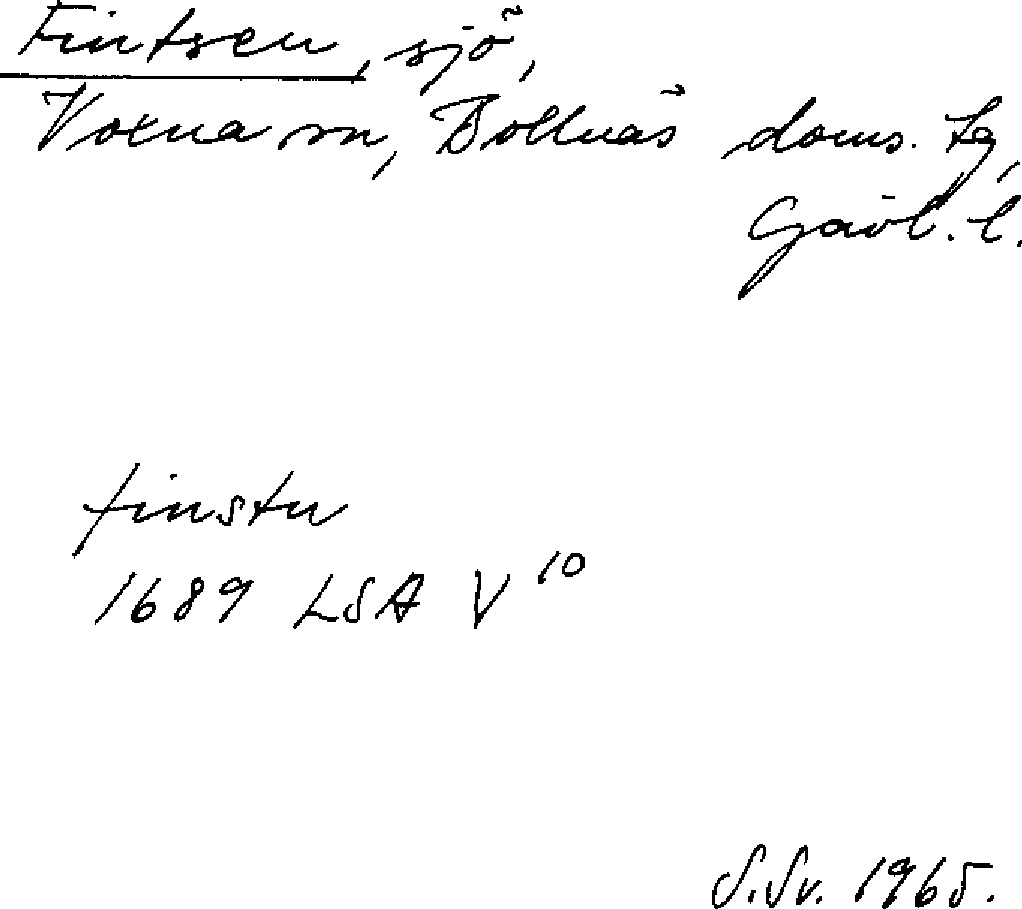 Fintsen, sjö,
Voxna sn, Bollnäs doms. tg,
Gävl. l.
finstn
1689 LSA V 10
S.Sv. 1965.